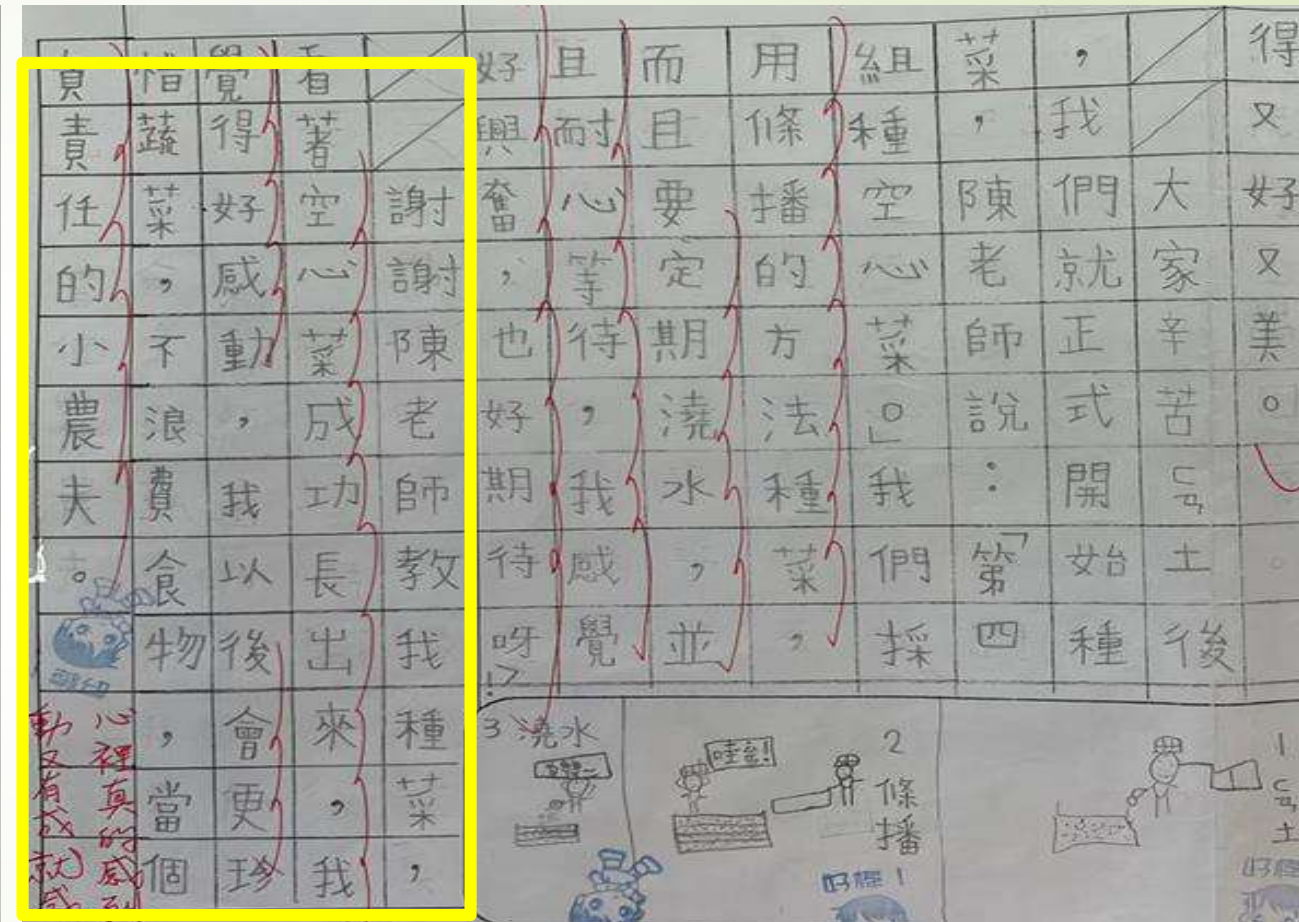 得又好又美。
大家辛苦ㄈㄢ土後
，我們就正式開始種
菜，陳老師說：「第四
組種空心菜。」我們採
用條播的方法種菜，
而且要定期澆水，並
且耐心等待，我感覺
好興奮，也好期待呀!?
謝謝陳老師教我種菜，
看著空心菜成功長出來，我
覺得好感動，我以後會更珍
惜蔬菜，不浪費食物，當個
負責任的小農夫。
心裡真的感到
動又有成就感
1ㄈㄢ土
2條播
好棒！
3澆水